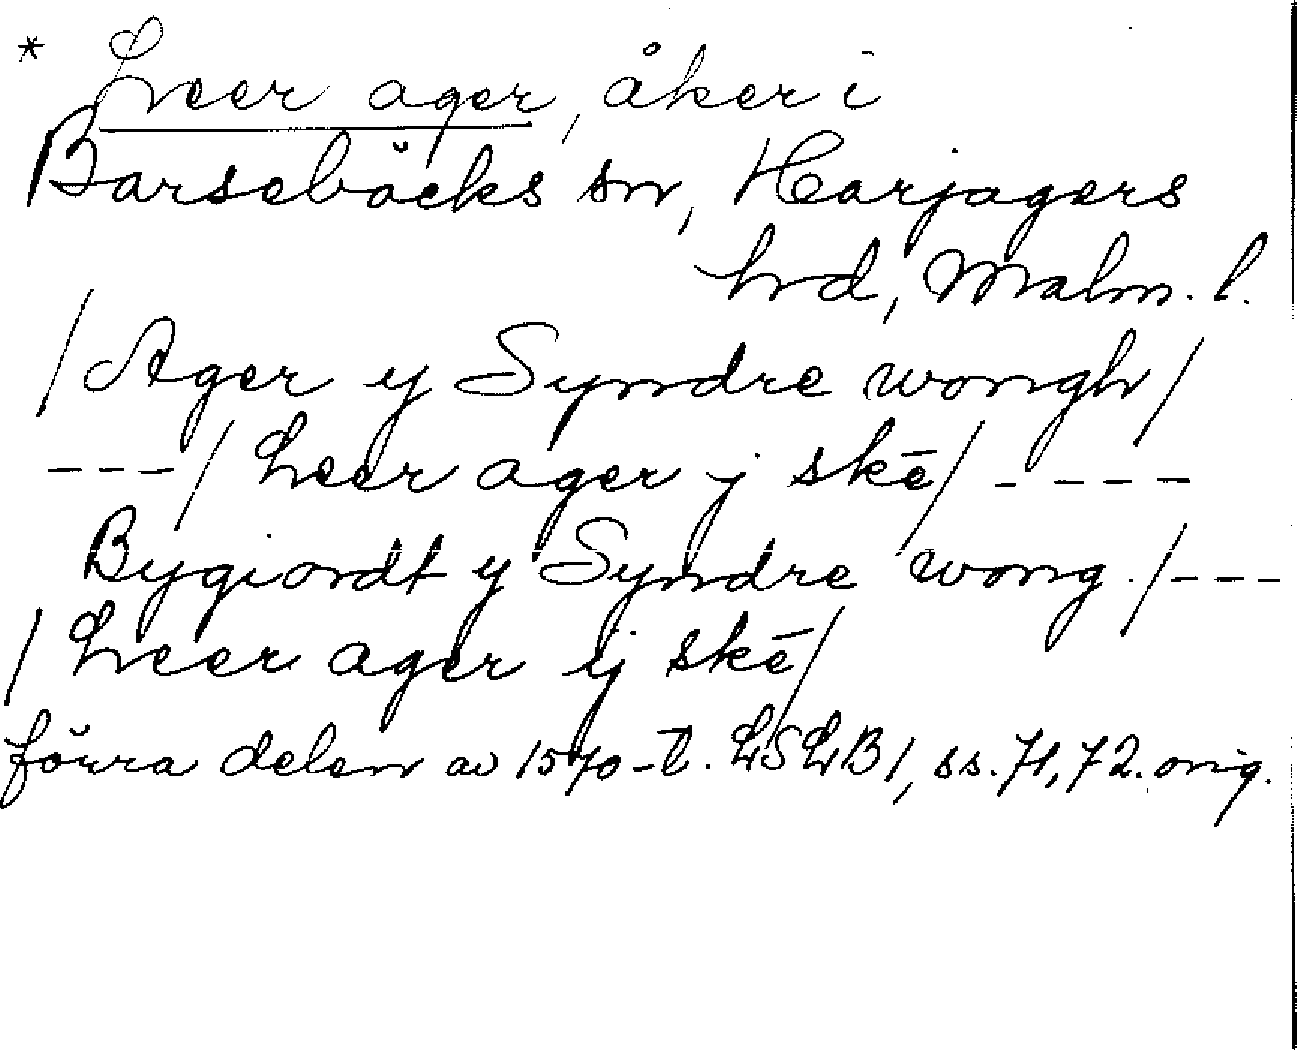 * Leer ager, åker i
Barsebäcks sn, Harjagers
hrd, Malm. l.
/ Ager y Syndre wongh /
--- / Leer ager j skē / ----
Bygiordt y Syndre wong. / ---
/ Leer ager ij skē /
förra delen av 1570-t. LSLB1, ss. 71, 72. orig.